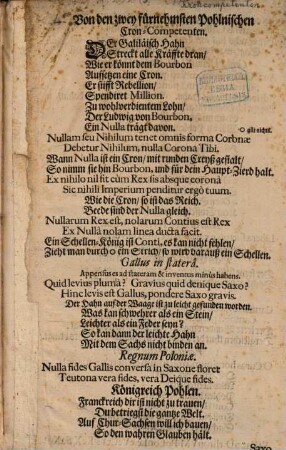 Kroncompetenten.
Von den zwey fürnehmsten Pohlnischen
Cron/Competenten.
BIBLIOTHECA
REGIA
MONACENSIS
DEr Galiläisch Hahn
Streckt alle Kräffte dran/
Wie er könnt dem Bourbon
Auffsetzen eine Cron.
Er stifft Rebellion/
Spendiret Million.
Zu wohlverdientem Lohn/
Der Ludwig von Bourbon,
Ein Nulla trägt davon.
O gilt nichts.
Nullam seu Nihilum tenet omnis forma Corbnæ
Debetur Nihilum, nulla Corona Tibi.
Wann Nulla ist ein Cron/ mit runden Creyß gestalt/
So nimm sie hin Bourbon, und für dein Haupt-Zierd halt.
Ex nihilo nil fit cùm Rex sis absque coronâ
Sic nihili Imperium penditur ergò tuum.
Wie die Cron/ so ist das Reich.
Beede sind der Nulla gleich.
Nullarum Rex est, nolarum Contius est Rex
Ex Nullâ nolam linea ducta facit.
Ein Schellen-König ist Conti, es kan nicht fehlen/
Zieht man durch o ein Strich/ so wird darauß ein Schellen.
Gallus in staterâ.
Appensus es ad stateram & inventus minùs habens.
Quid levius plumâ? Gravius quid denique Saxo?
Hinc levis est Gallus, pondere Saxo gravis.
Der Hahn auf der Waage ist zu leicht gefunden worden.
Was kan schwehrer als ein Stein/
Leichter als ein Feder seyn?
So kan dann der leichte Hahn
Mit dem Sachs nicht binden an.
Regnum Poloniæ.
Nulla fides Gallis conversâ in Saxone floret
Teutona vera fides, vera Deique fides.
Königreich Pohlen.
Franckreich dir ist nicht zu trauen/
Du betriegst die gantze Welt.
Auf Chur-Sachsen will ich bauen/
So den wahren Glauben hält.
Saxo